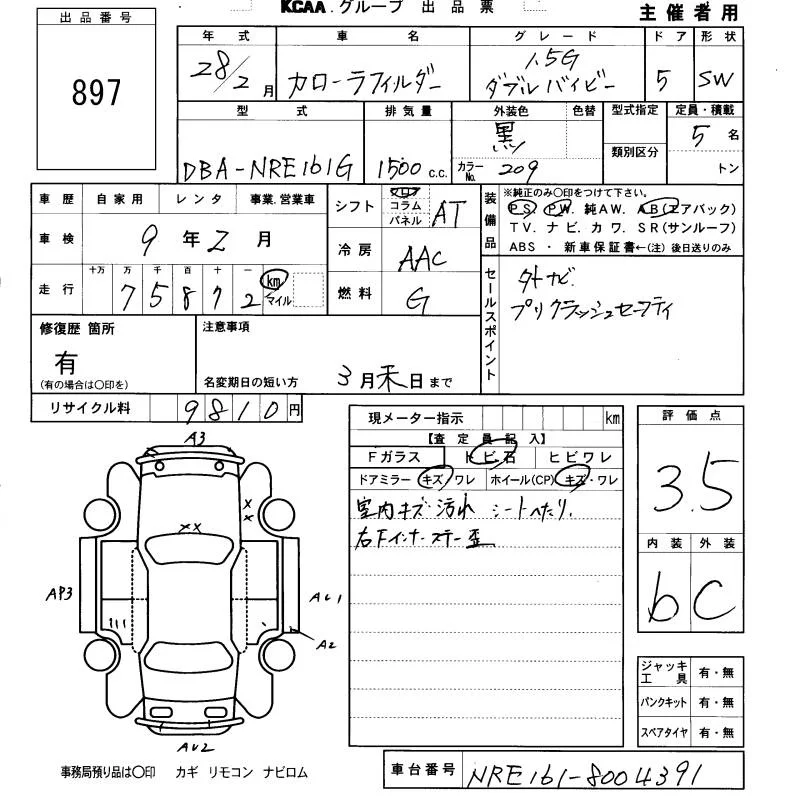 KCAA.グループ 出品票
主催者用
出品番号
897
年式 車名 グレード ドア 形状
28/2月 カローラフィルダー 1.5G ダブルバイビー 5 SW
型式 排気量 外装色 色替 型式指定 定員・積載
DBA-NRE161G 1500 c.c. 黒 カラーNo. 209 類別区分 5名 トン
車歴 自家用 レンタ 事業.営業車
車検 9年2月
走行 十万 万 千 百 十 一 km マイル
75872
シフト フロア コラム パネル AT
冷房 AAC
燃料 G
装備品
※純正のみ〇印をつけて下さい。
P.S. P.W. 純A.W. A.B(エアバック)
T.V. ナビ. カワ. S.R(サンルーフ)
A.B.S ・ 新車保証書←(注)後日送りのみ
セールスポイント
外ナビ
プリクラッシュセーフティ
修復歴 箇所
有
(有の場合は〇印を)
注意事項
名変期日の短い方 3月末日まで
リサイクル料 9810円
現メーター指示 km
【査定員記入】
Fガラス トビ石 ヒビワレ
ドアミラー キズ ワレ ホイール(CP) キズ・ワレ
室内キズ 汚れ シートへたり.
右Fインナーステー歪
評価点
3.5
内装 外装
b C
A3
XX
X
X
AP3
AU1
A2
AU2
ジャッキ工具 有・無
パンクキット 有・無
スペアタイヤ 有・無
事務局預り品は〇印 カギ リモコン ナビロム
車台番号 NRE161-8004391